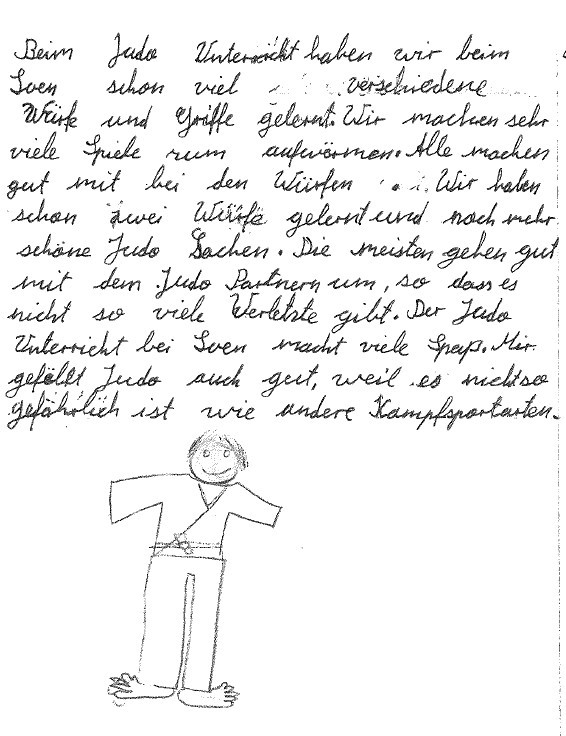 Beim Judo Unterricht haben wir beim
Sven schon viel verschiedene
Würfe und Griffe gelernt. Wir machen sehr
viele Spiele zum aufwärmen. Alle machen
gut mit bei den Würfen . Wir haben
schon zwei Würfe gelernt und noch mehr
schöne Judo Sachen. Die meisten gehen gut
mit dem Judo Partnern um, so dass es
nicht so viele Verletzte gibt. Der Judo
Unterricht bei Sven macht viele Spaß. Mir
gefällt Judo auch gut, weil es nicht so
gefährlich ist wie andere Kampfsportarten.